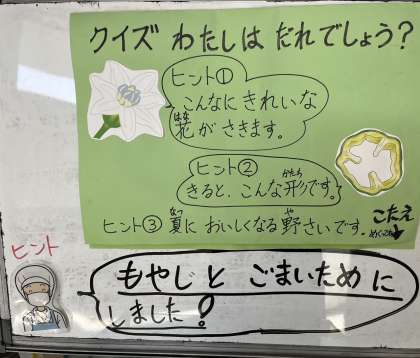 クイズ わたしは だれでしょう?
ヒント①
こんなに きれいな
花が さきます。
はな
ヒント②
きると、こんな形です。
かたち
ヒント③ 夏に おいしくなる野さいです。
なつ
や
こたえ
ヒント
もやしと ごまいために
しました!